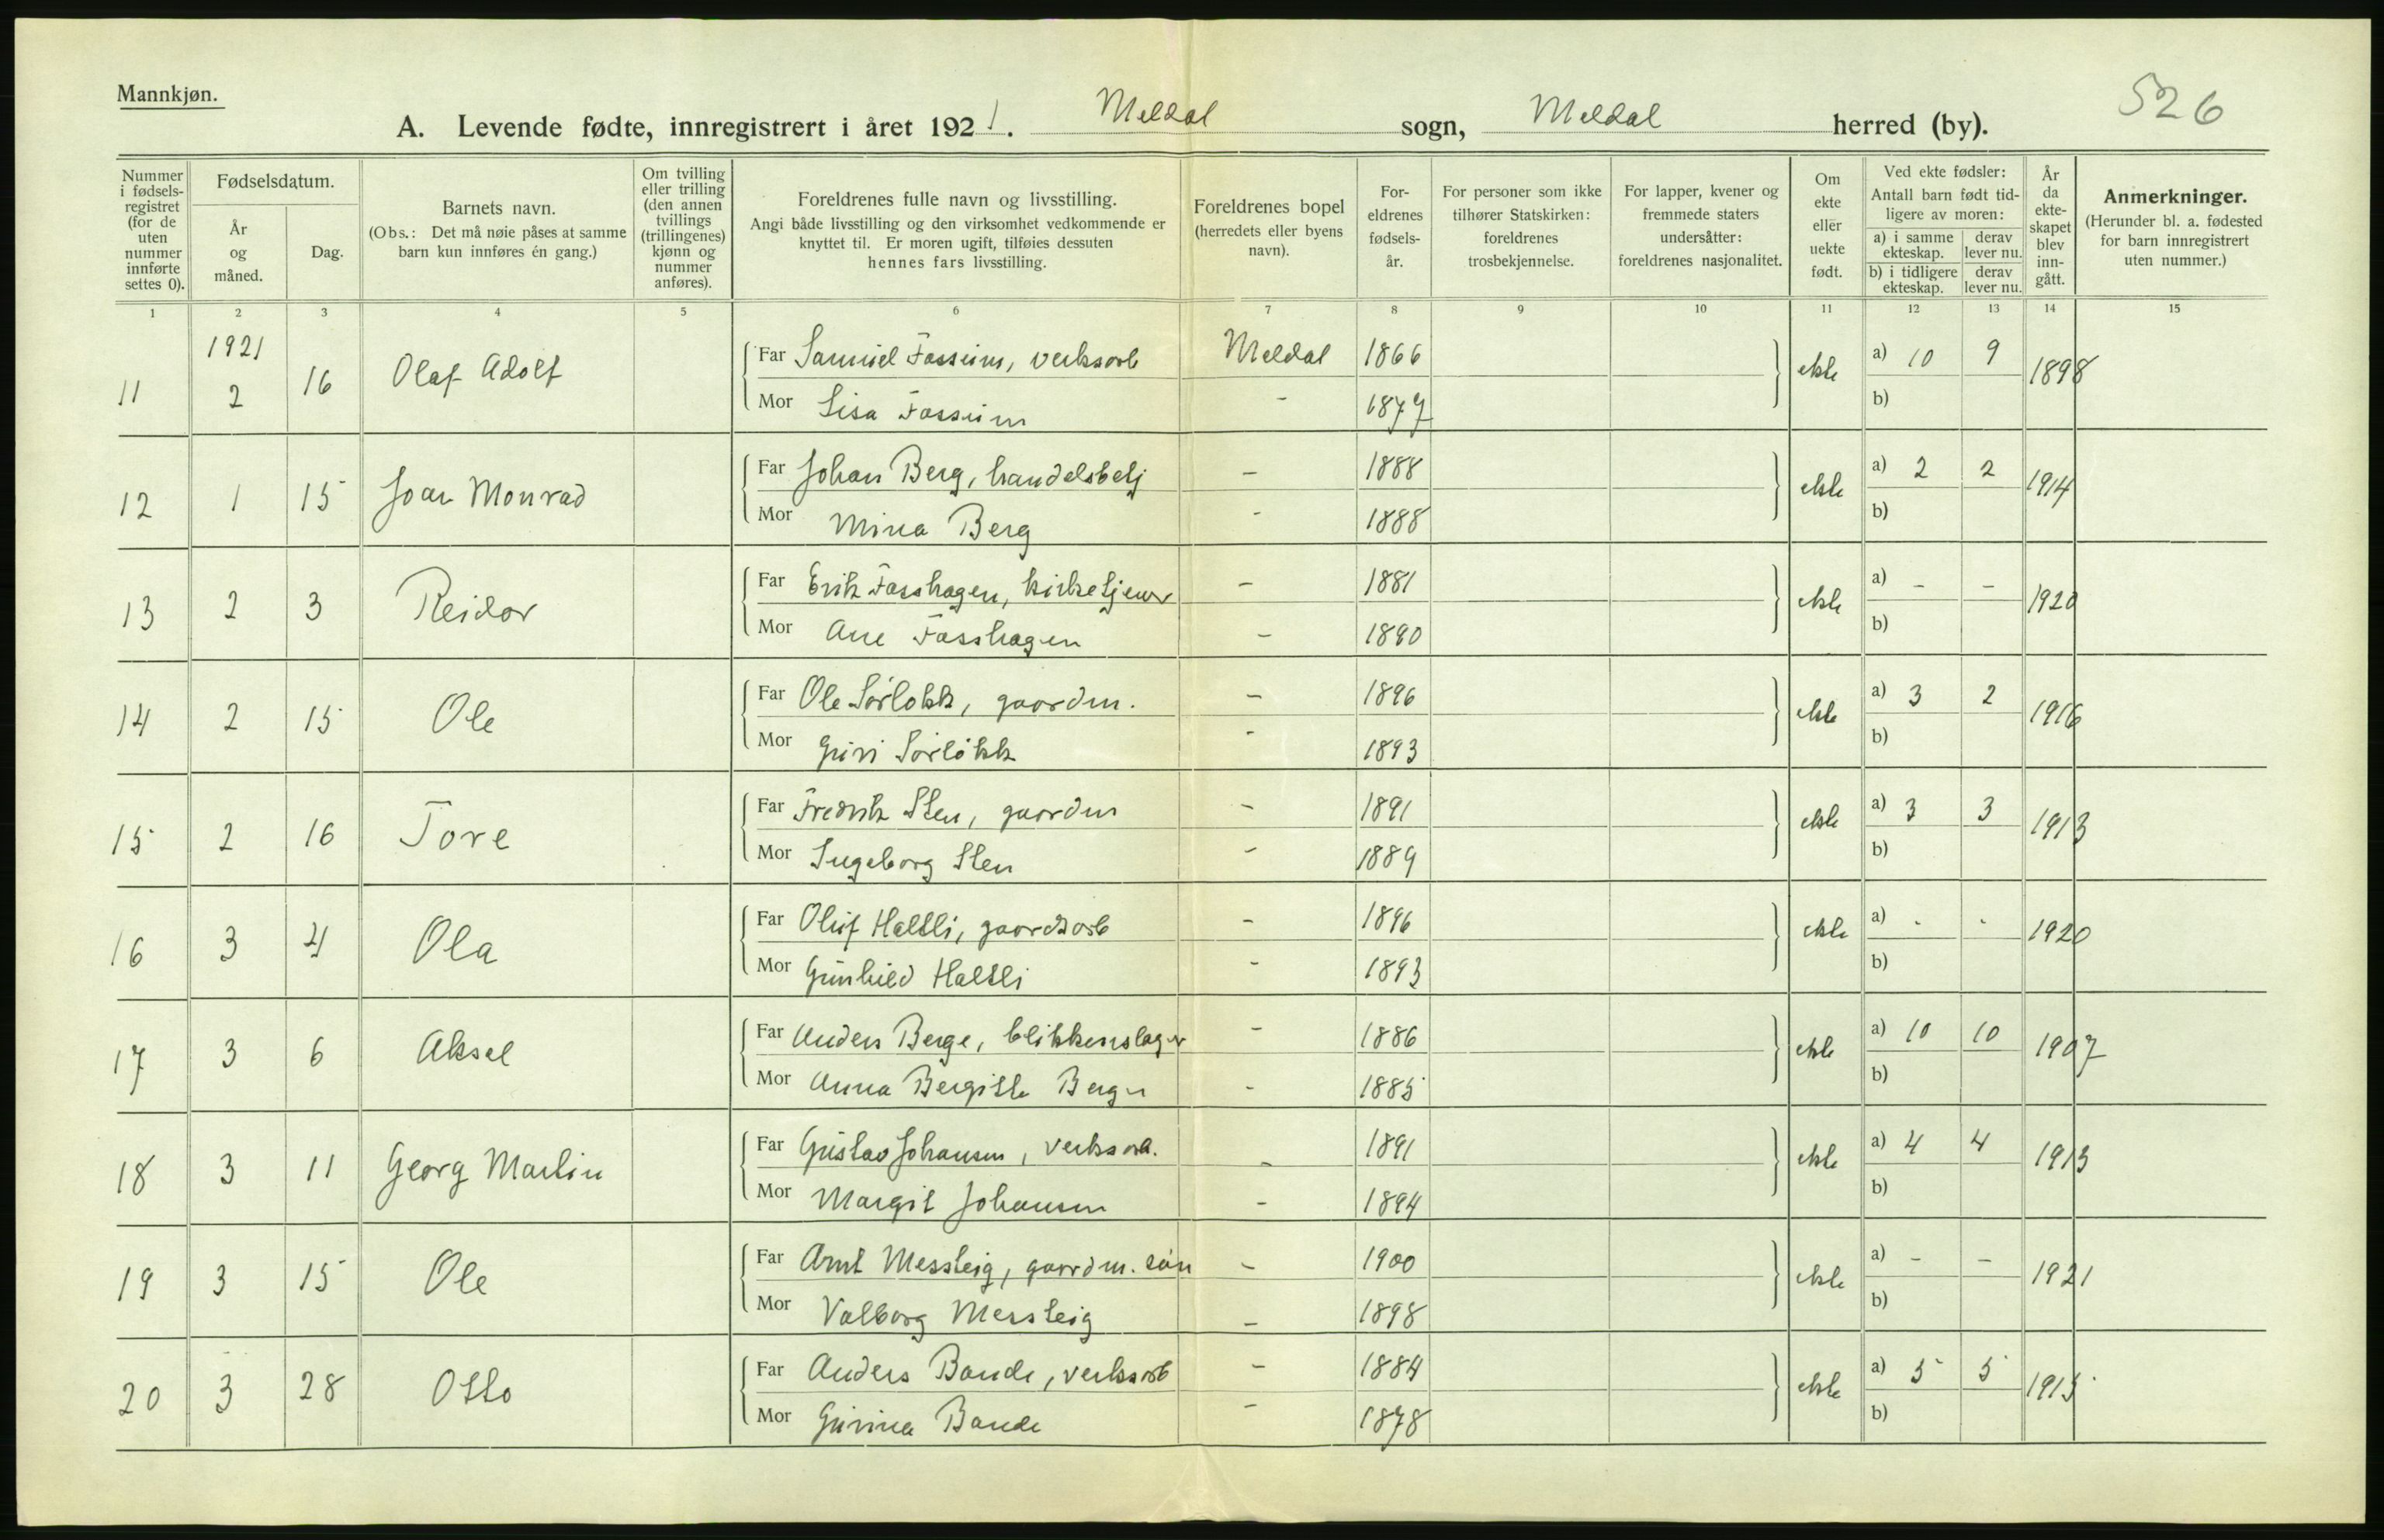 Mannkjøn.
526
A. Levende fødte, innregistrert i året 1921. Meldal sogn, Meldal herred (by).
Nummer i fødselsregistret (for de uten nummer innførte settes 0).
Fødselsdatum.
År og måned.
Dag.
Barnets navn.
(Obs.: Det må nøie påses at samme barn kun innføres én gang.)
Om tvilling eller trilling (den annen tvillings (trillingenes) kjønn og nummer anføres).
Foreldrenes fulle navn og livsstilling.
Angi både livsstilling og den virksomhet vedkommende er knyttet til. Er moren ugift, tilføies dessuten hennes fars livsstilling.
Foreldrenes bopel (herredets eller byens navn).
Foreldrenes fødselsår.
For personer som ikke tilhører Statskirken: foreldrenes trosbekjennelse.
For lapper, kvener og fremmede staters undersåtter: foreldrenes nasjonalitet.
Om ekte eller uekte født.
Ved ekte fødsler:
Antall barn født tidligere av moren:
a) i samme ekteskap. derav lever nu.
b) i tidligere ekteskap. derav lever nu.
År da ekteskapet blev inngått.
Anmerkninger.
(Herunder bl. a. fødested for barn innregistrert uten nummer.)
1 2 3 4 5 6 7 8 9 10 11 12 13 14 15
1921
11 2 16 Olaf Adolf Far Samuel Fossum, verksarb Meldal 1866 ekte a) 10 9 1898
Mor Lisa Fossum - 1877 b)
12 1 15 Joar Monrad Far Johan Berg, handelsbetj - 1888 ekte a) 2 2 1914
Mor Mina Berg - 1888 b)
13 2 3 Reidar Far Erik Fosshagen, kirketjener - 1881 ekte a) - - 1920
Mor Ane Fosshagen - 1890 b)
14 2 15 Ole Far Ole Sørløkk, gaardm. - 1896 ekte a) 3 2 1916
Mor Guri Sørløkk - 1893 b)
15 2 16 Tore Far Fredrik Sten, gaardm - 1891 ekte a) 3 3 1913
Mor Ingeborg Sten - 1889 b)
16 3 4 Ola Far Oluf Haltli, gaardsarb - 1896 ekte a) - - 1920
Mor Gunhild Haltli - 1893 b)
17 3 6 Aksel Far Anders Berge, blikkenslager - 1886 ekte a) 10 10 1907
Mor Anna Bergitte Berge - 1885 b)
18 3 11 Georg Martin Far Gustav Johansen, verksarb. - 1891 ekte a) 4 4 1913
Mor Margit Johansen - 1894 b)
19 3 15 Ole Far Arnt Messteig, gaardm. søn - 1900 ekte a) - - 1921
Mor Valborg Messteig - 1898 b)
20 3 28 Otto Far Anders Bande, verksarb - 1884 ekte a) 5 5 1915
Mor Gurina Bande - 1878 b)